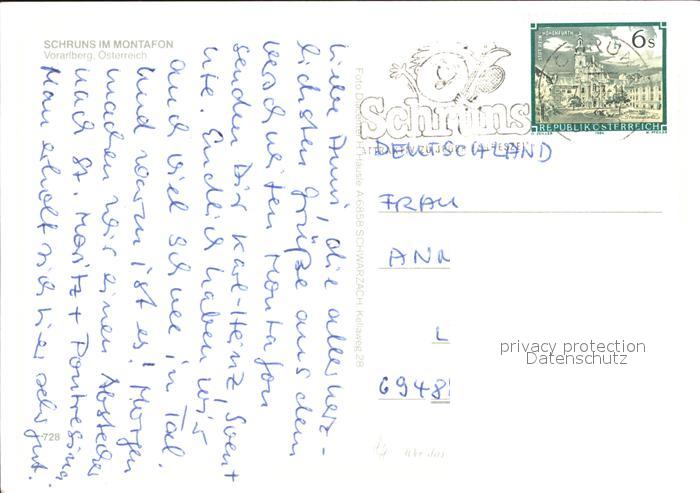 SCHRUNS IM MONTAFON
Vorarlberg, Österreich
Liebe Anni, die allerherz-
lichsten Grüße aus dem
verschneiten Montafon
senden Dir Karl-Heinz, Sven +
Ute. Endlich haben wir
auch viel Schnee im Tal.
Und warm ist es! Morgen
machen wir einen Abstecher
nach St. Moritz + Pontresina.
Man erholt sich hier sehr gut.
728
A-6858 SCHWARZACH, Kellaweg 28
STIFT REIN-HOHENFURTH
6 S
REPUBLIK ÖSTERREICH
Schruns
DEUTSCHLAND
FRAU
ANN
L
6948
privacy protection
Datenschutz